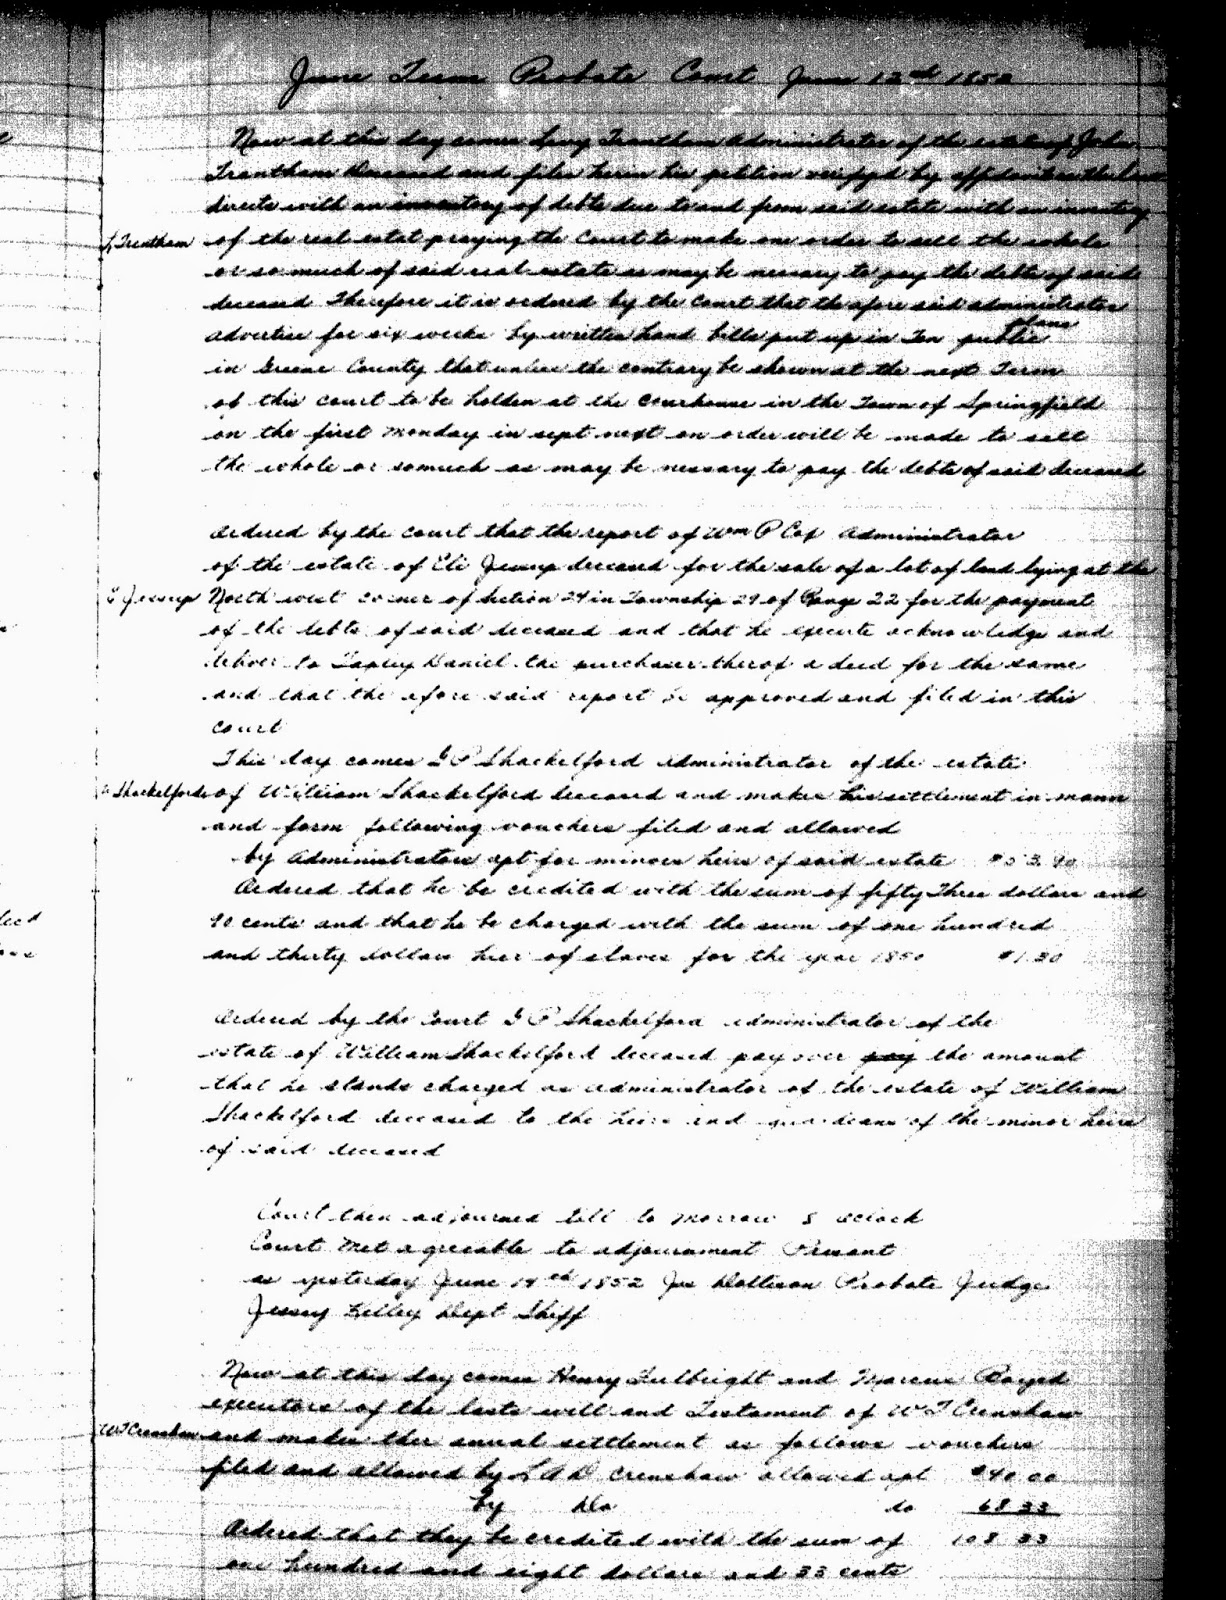 June Term Probate Court June 12th 1852
Now at this day comes Trantham Administrator of the estate of John
Trantham Deceased and files herin his petition verifyd by affidavit as the law
directs with an inventory of debts due to and from said estate with an inventory
Trantham of the real estat praying the Court to make an order to sell the whole
or so much of said real estate as may be nessary to pay the debts of said
deceased Therefore it is ordered by the Court that the afore said administrator
advertise for six weeks by written hand bills put up in Ten public places
in Greene County that unless the contrary be shown at the next Term
of this court to be holden at the Courhouse in the Town of Springfield
on the first Monday in sept next an order will be made to sell
the whole or somuch as may be nessary to pay the debts of said deceased
Ordered by the court that the report of Wm P Cox Administrator
of the estate of Eli Jessup deceased for the sale of a lot of land lying at the
E Jessup North west corner of Section 24 in Township 29 of Range 22 for the payment
of the debts of said deceased and that he execute acknowledge and
deliver to Tapley Daniel the purchaser therof a deed for the same
and that the afore said report be approved and filed in this
court
This day comes G P Shackelford administrator of the estate
Shackelfords of William Shackelford deceased and makes his settlement in mann
and form following vouchers filed and allowed
by Administrators apt for minors heirs of said estate $53.90
Ordered that he be credited with the sum of fifty Three dollars and
90 cents and that he be charged with the sum of one hundred
and thirty dollars hier of slaves for the year 1850 $1.30
Ordered by the Court G P Shackelford administrator of the
estate of William Shackelford deceased pay over pay the amount
that he stands charged as administrator of the estate of William
Shackelford deceased to the heirs and guardians of the minor heirs
of said deceased
Court then adjourned till to morrow 8 oclock
Court met agreeable to adjournment Present
as yesterday June 14th 1852 Jos Dollison Probate Judge
Jessey Kelley Dept Shiff
Now at this day comes Henry Fulbright and Marcus Boyed
executors of the lasts will and Testament of W T Crenshaw
W T Crenshaw and makes ther annual settlement as follows vouchers
filed and allowed by L A D Crenshaw allowed apt $40.00
by Do do 68.33
Ordered that they be credited with the sum of 108 33
one hundred and eight dollars and 33 cents